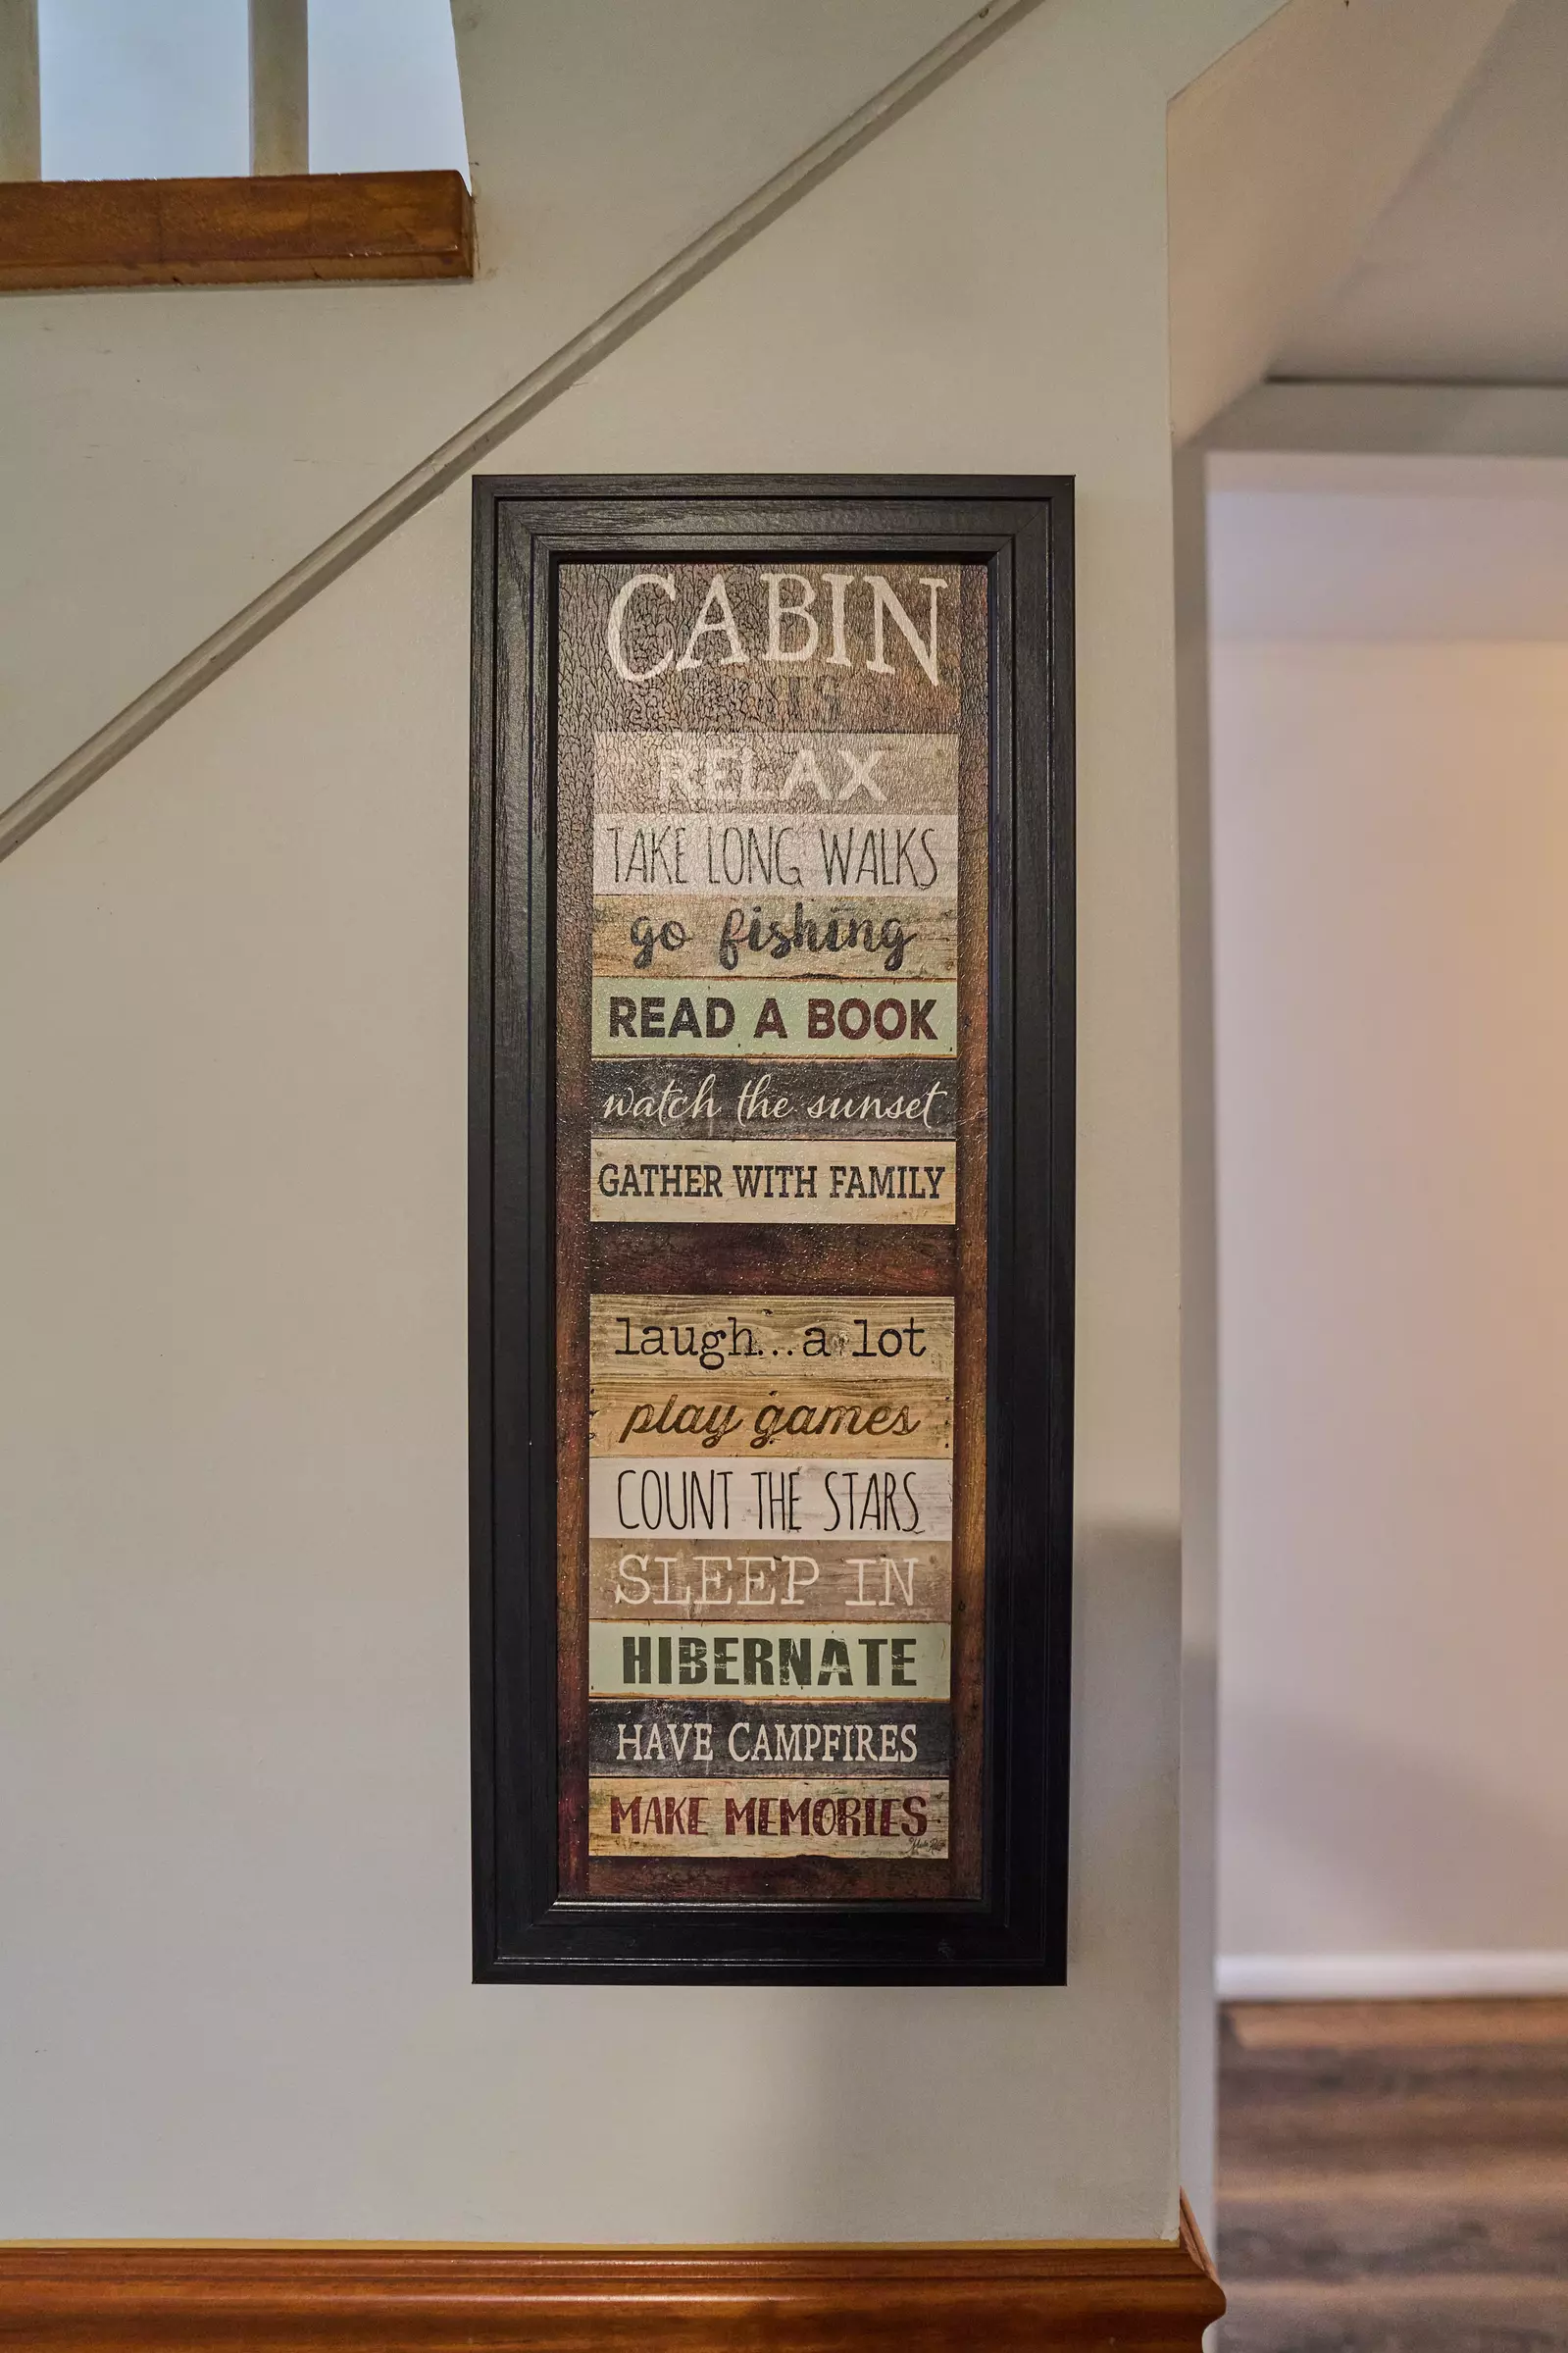 CABIN
RELAX
TAKE LONG WALKS
go fishing
READ A BOOK
watch the sunset
GATHER WITH FAMILY
laugh...a lot
play games
COUNT THE STARS
SLEEP IN
HIBERNATE
HAVE CAMPFIRES
MAKE MEMORIES